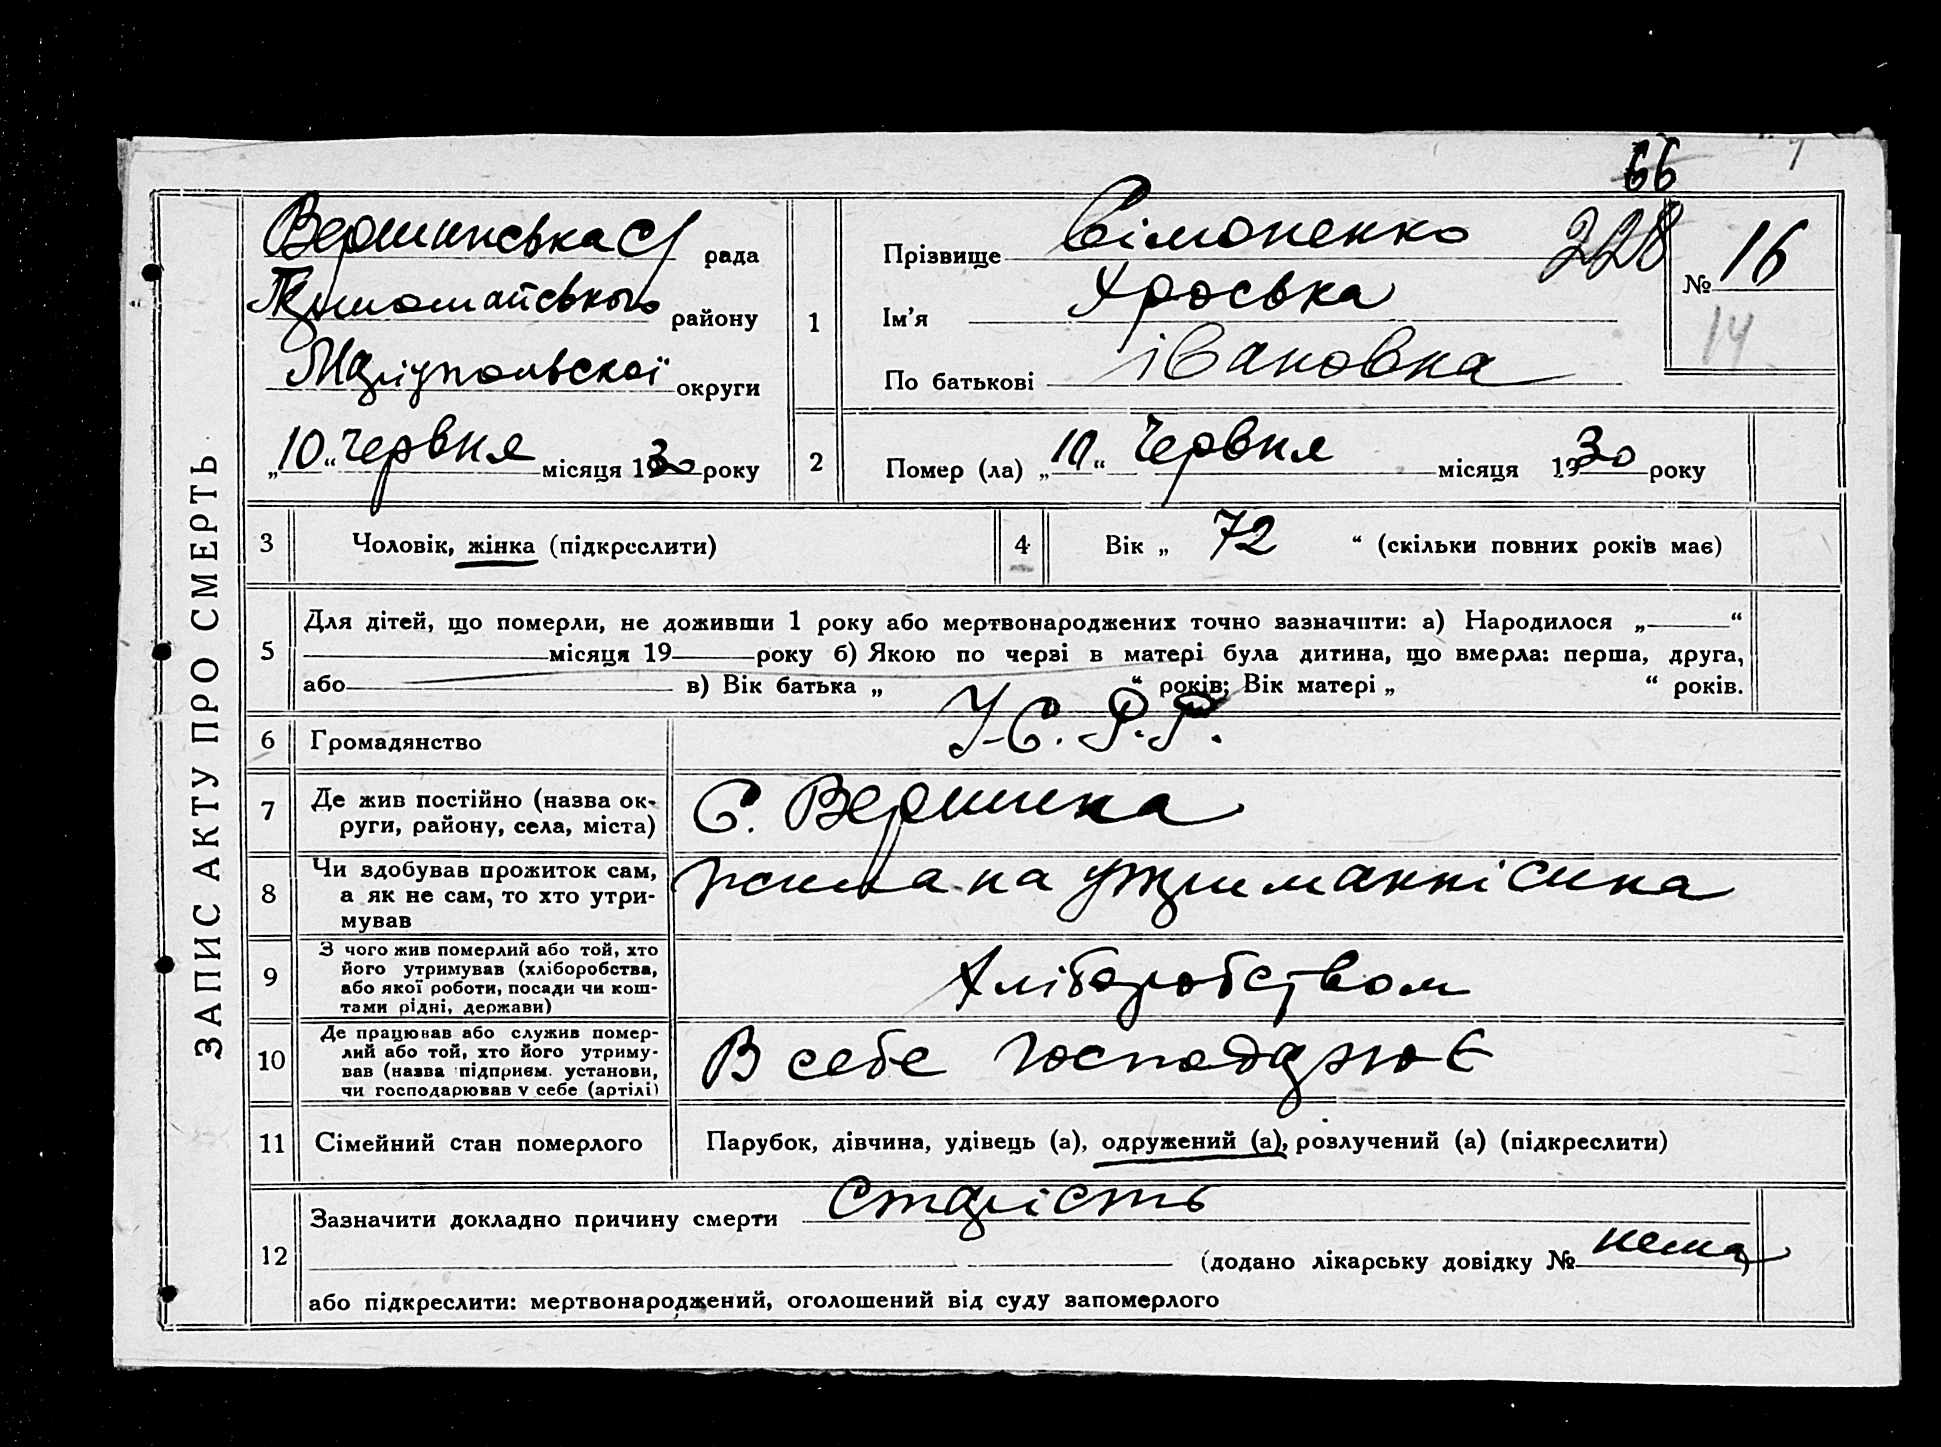 66
ЗАПИС АКТУ ПРО СМЕРТЬ
Вершинська С/ рада
району
Маріупольскої округи
„10“ червня місяця 1930 року
1
Прізвище Сімоненко 228
Ім'я Хроська
По батькові івановна
№ 16
14
2
Помер (ла) „10“ Червня місяця 1930 року
3 Чоловік, жінка (підкреслити)
4 Вік „ 72 “ (скільки повних років має)
5
Для дітей, що померли, не доживши 1 року або мертвонароджених точно зазначити: а) Народилося „ “
місяця 19 року б) Якою по черзі в матері була дитина, що вмерла: перша, друга,
або в) Вік батька „ “ років; Вік матері „ “ років.
6 Громадянство У.С.Р.Р.
7 Де жив постійно (назва ок-
руги, району, села, міста)
С. Вершина
8 Чи здобував прожиток сам,
а як не сам, то хто утри-
мував
жила на утриманні сина
9 З чого жив померлий або той, хто
його утримував (хліборобства,
або якої роботи, посади чи кош-
тами рідні, держави)
Хліборобством
10 Де працював або служив помер-
лий або той, хто його утриму-
вав (назва підприєм. установи,
чи господарював у себе (артілі)
В себе господарює
11 Сімейний стан померлого
Парубок, дівчина, удівець (а), одружений (а), розлучений (а) (підкреслити)
12
Зазначити докладно причину смерти старість
(додано лікарську довідку № нема)
або підкреслити: мертвонароджений, оголошений від суду запомерлого